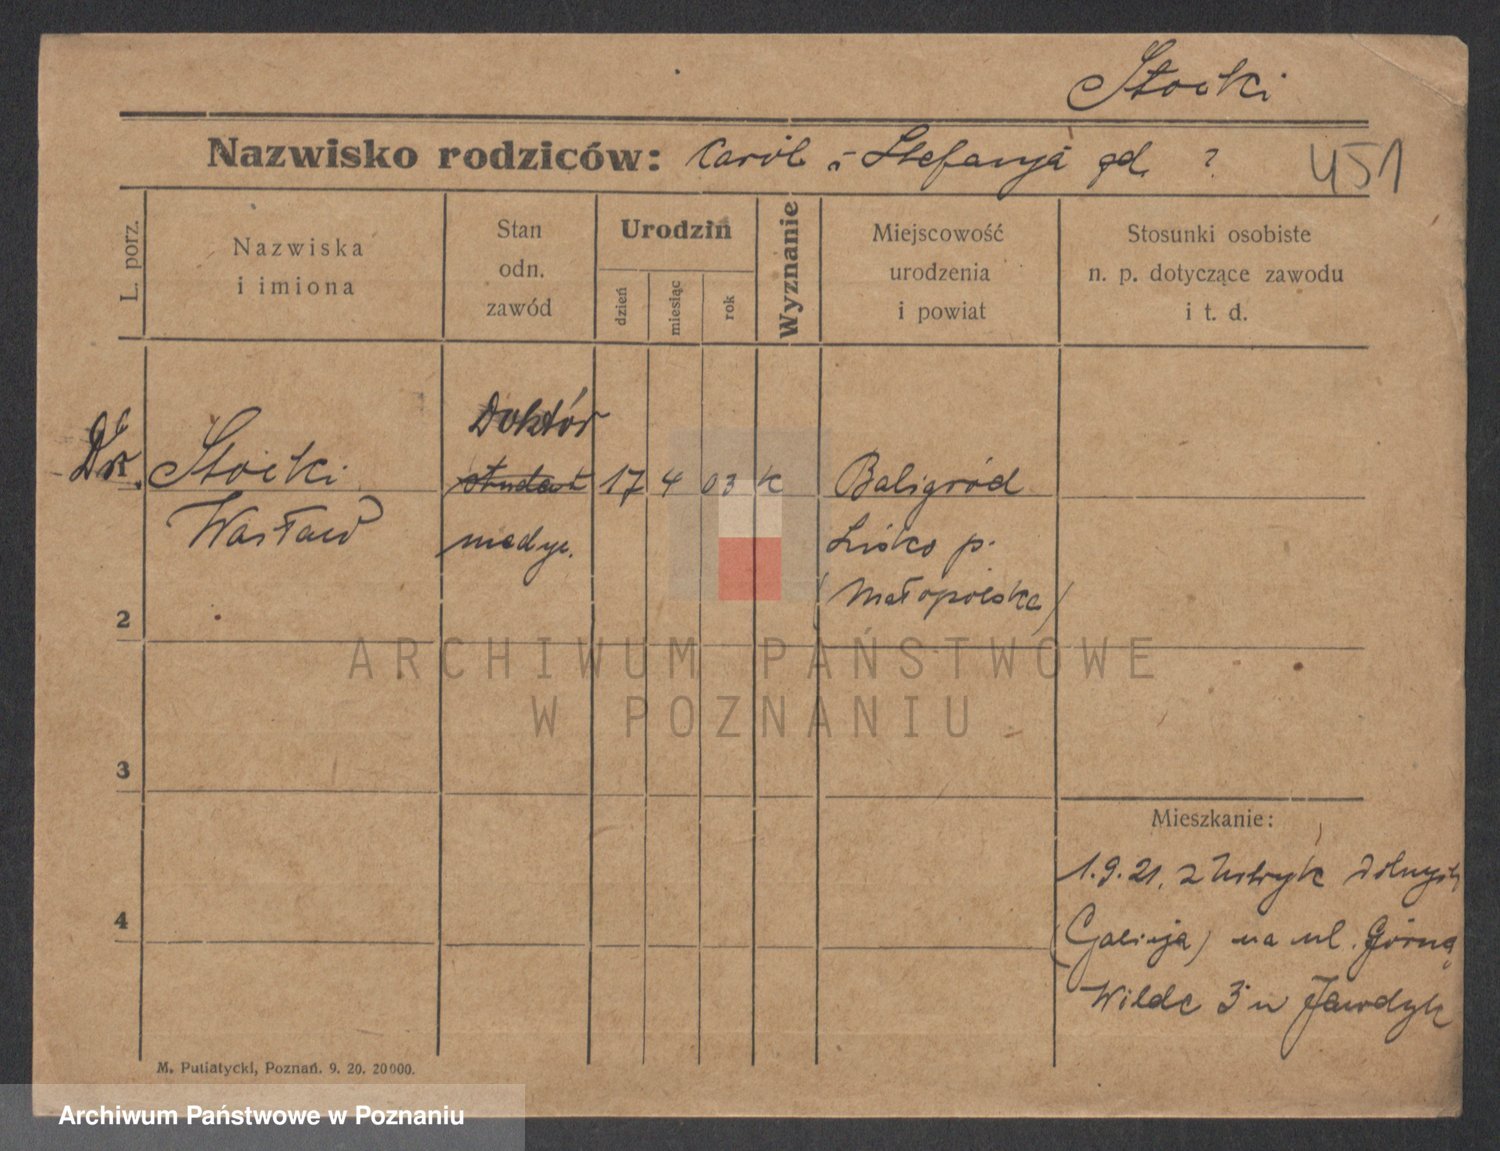 Stocki
Nazwisko rodziców: Carol i Stefanja zd. ?
451
L. porz.
Nazwiska
i imiona
Stan
odn.
zawód
Urodzin
dzień
miesiąc
rok
Wyznanie
Miejscowość
urodzenia
i powiat
Stosunki osobiste
n. p. dotyczące zawodu
i t. d.
Doktór
Dr. Stocki student 17 4 03 k Baligród
Wacław medyc. Lisko p.
(Małopolska)
2
3
4
Mieszkanie:
1.9.21. z Ustryk Dolnych
(Galicja) na ul. Górna
Wilda 3 u
M. Putiatycki, Poznań. 9. 20. 20000.
ARCHIWUM PAŃSTWOWE
W POZNANIU
Archiwum Państwowe w Poznaniu